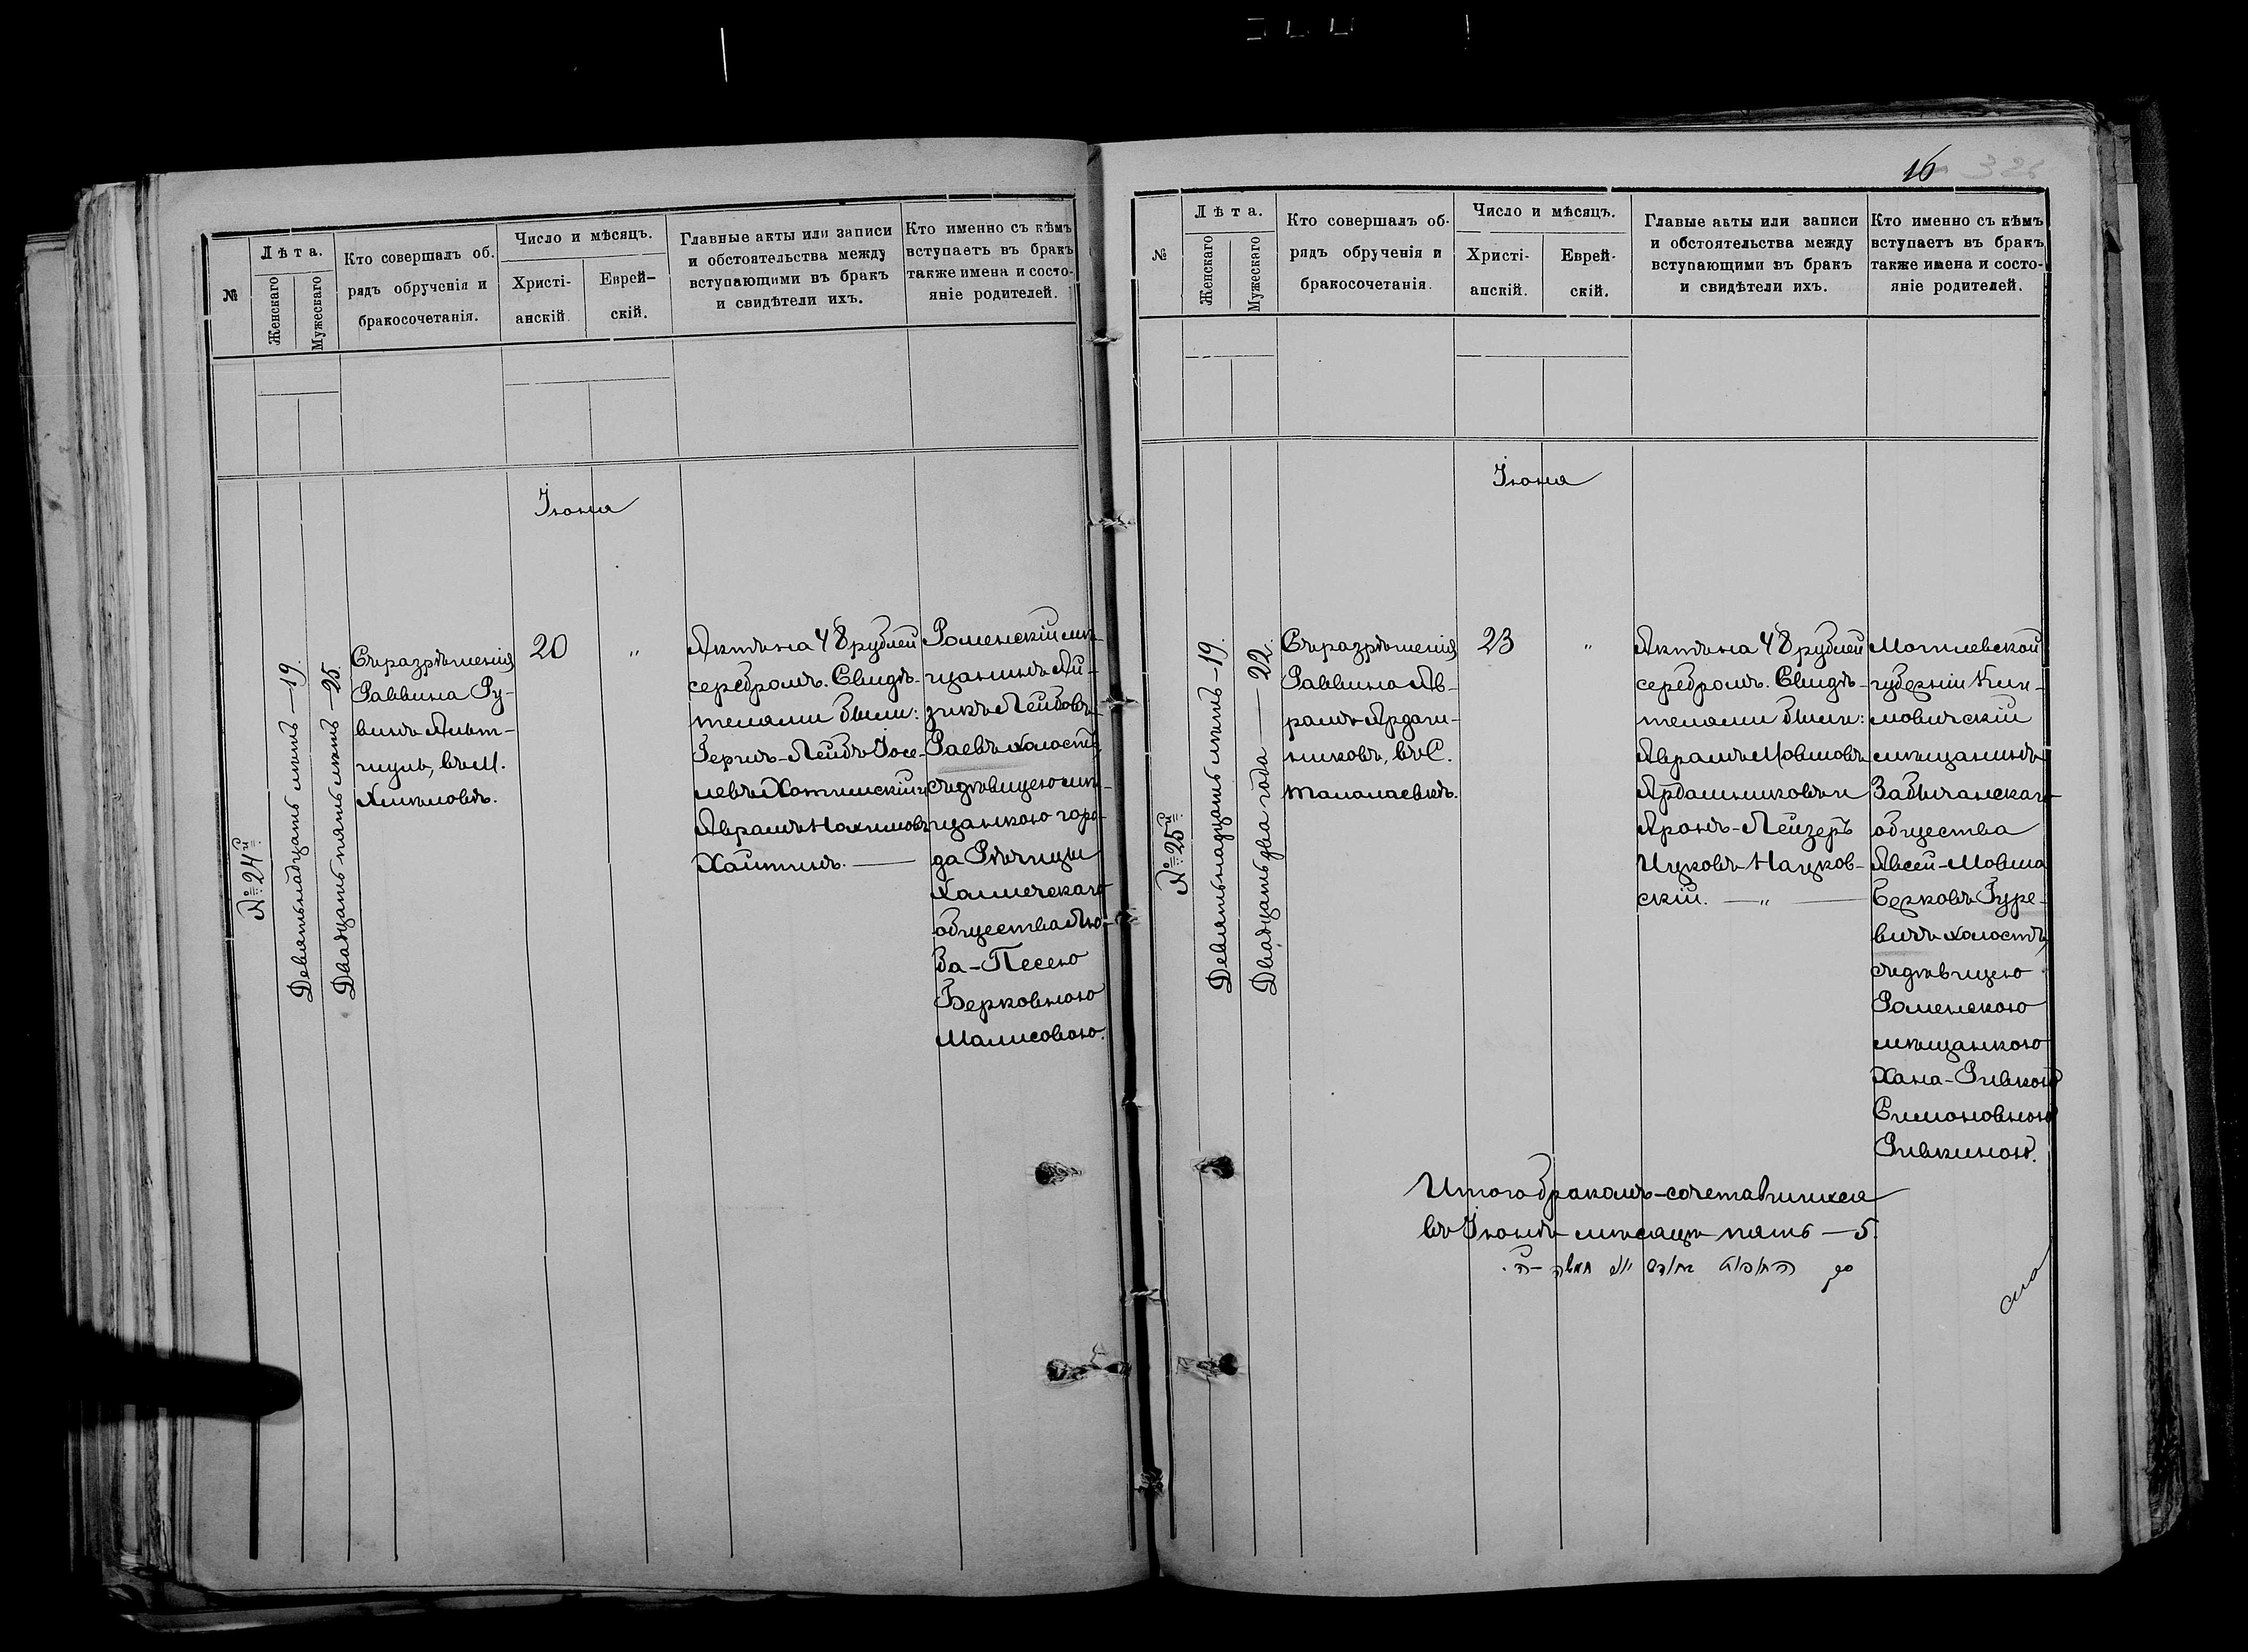 №
Лѣта.
Женскаго
Мужескаго
Кто совершалъ об.
рядъ обрученія и
бракосочетанія.
Число и мѣсяцъ.
Христі-
анскій.
Еврей-
скій.
Главные акты или записи
и обстоятельства между
вступающими въ бракъ
и свидѣтели ихъ.
Кто именно съ кѣмъ
вступаетъ въ бракъ
также имена и состо-
яніе родителей.
Іюня
№ 24й
Девятьнадцать лѣтъ — 19.
Двадцать пять лѣтъ — 25.
Съ разрѣшенія
Раввина Ру-
винъ Альт-
шуль, въ М.
Хмѣловѣ.
20
„
Актъ на 48 рублей
серебромъ. Свидѣ-
телями были:
Герцъ-Лейбъ Іосе-
левъ Хотимскій и
Абрамъ Нахимовъ
Хаитинъ. —
Роменскій мѣ-
щанинъ Ай-
зикъ Лейбовъ
Раевъ холостъ,
съ дѣвицею мѣ-
щанкою горо-
да Рѣчицы
общества Лю-
ба-Песею
Берковною
Малисовою.
16
326
№
Лѣта.
Женскаго
Мужескаго
Кто совершалъ об-
рядъ обрученія и
бракосочетанія.
Число и мѣсяцъ.
Христі-
анскій.
Еврей-
скій.
Главые акты или записи
и обстоятельства между
вступающими въ бракъ
и свидѣтели ихъ.
Кто именно съ кѣмъ
вступаетъ въ бракъ
также имена и состо-
яніе родителей.
Іюня
№ 25й
Девятьнадцать лѣтъ — 19.
Двадцать два года — 22.
Съ разрѣшенія
Раввина Аб-
рамъ
въ С.
Талалаевкѣ.
23
„
Актъ на 48 рублей
серебромъ. Свидѣ-
телями были:
Абрамъ Мовшовъ
Ардашниковъ и
Аронъ-Лейзеръ
Ицковъ Нацков-
скій. — „ —
Могилевской
губерніи Кли-
мовичскій
мѣщанинъ
Забычанскаго
общества
Авсей-Мовша
Берковъ Гуре-
вичъ холостъ,
съ дѣвицею
Роменскою
мѣщанкою
Хана-Ривкою
Симоновною
Ривкиною.
Итого бракомъ-сочетавшихся
въ Іюнѣ мѣсяцѣ пять — 5.